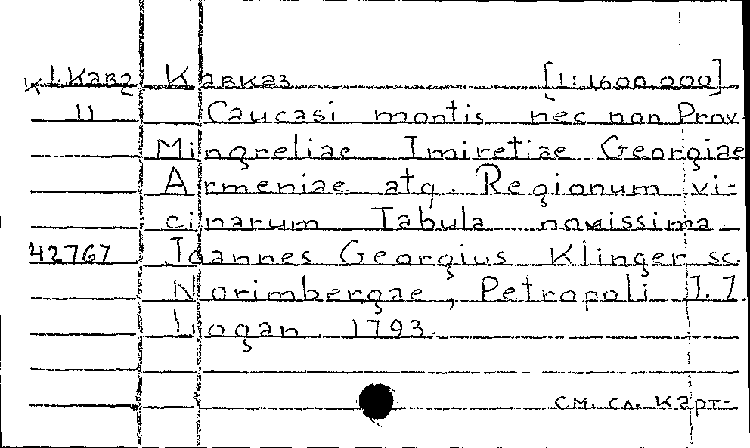 К 1.Кавз Кавказ [1:1600 000]
11 Caucasi montis nec non Prov.
Mingreliae Imiretiae Georgiae
Armeniae atq. Regionum vi-
cinarum Tabula novissima
42767 Joannes Georgius Klinger sc.
Norimbergae, Petropoli J. J.
Logan 1793.
см. сл. карт-